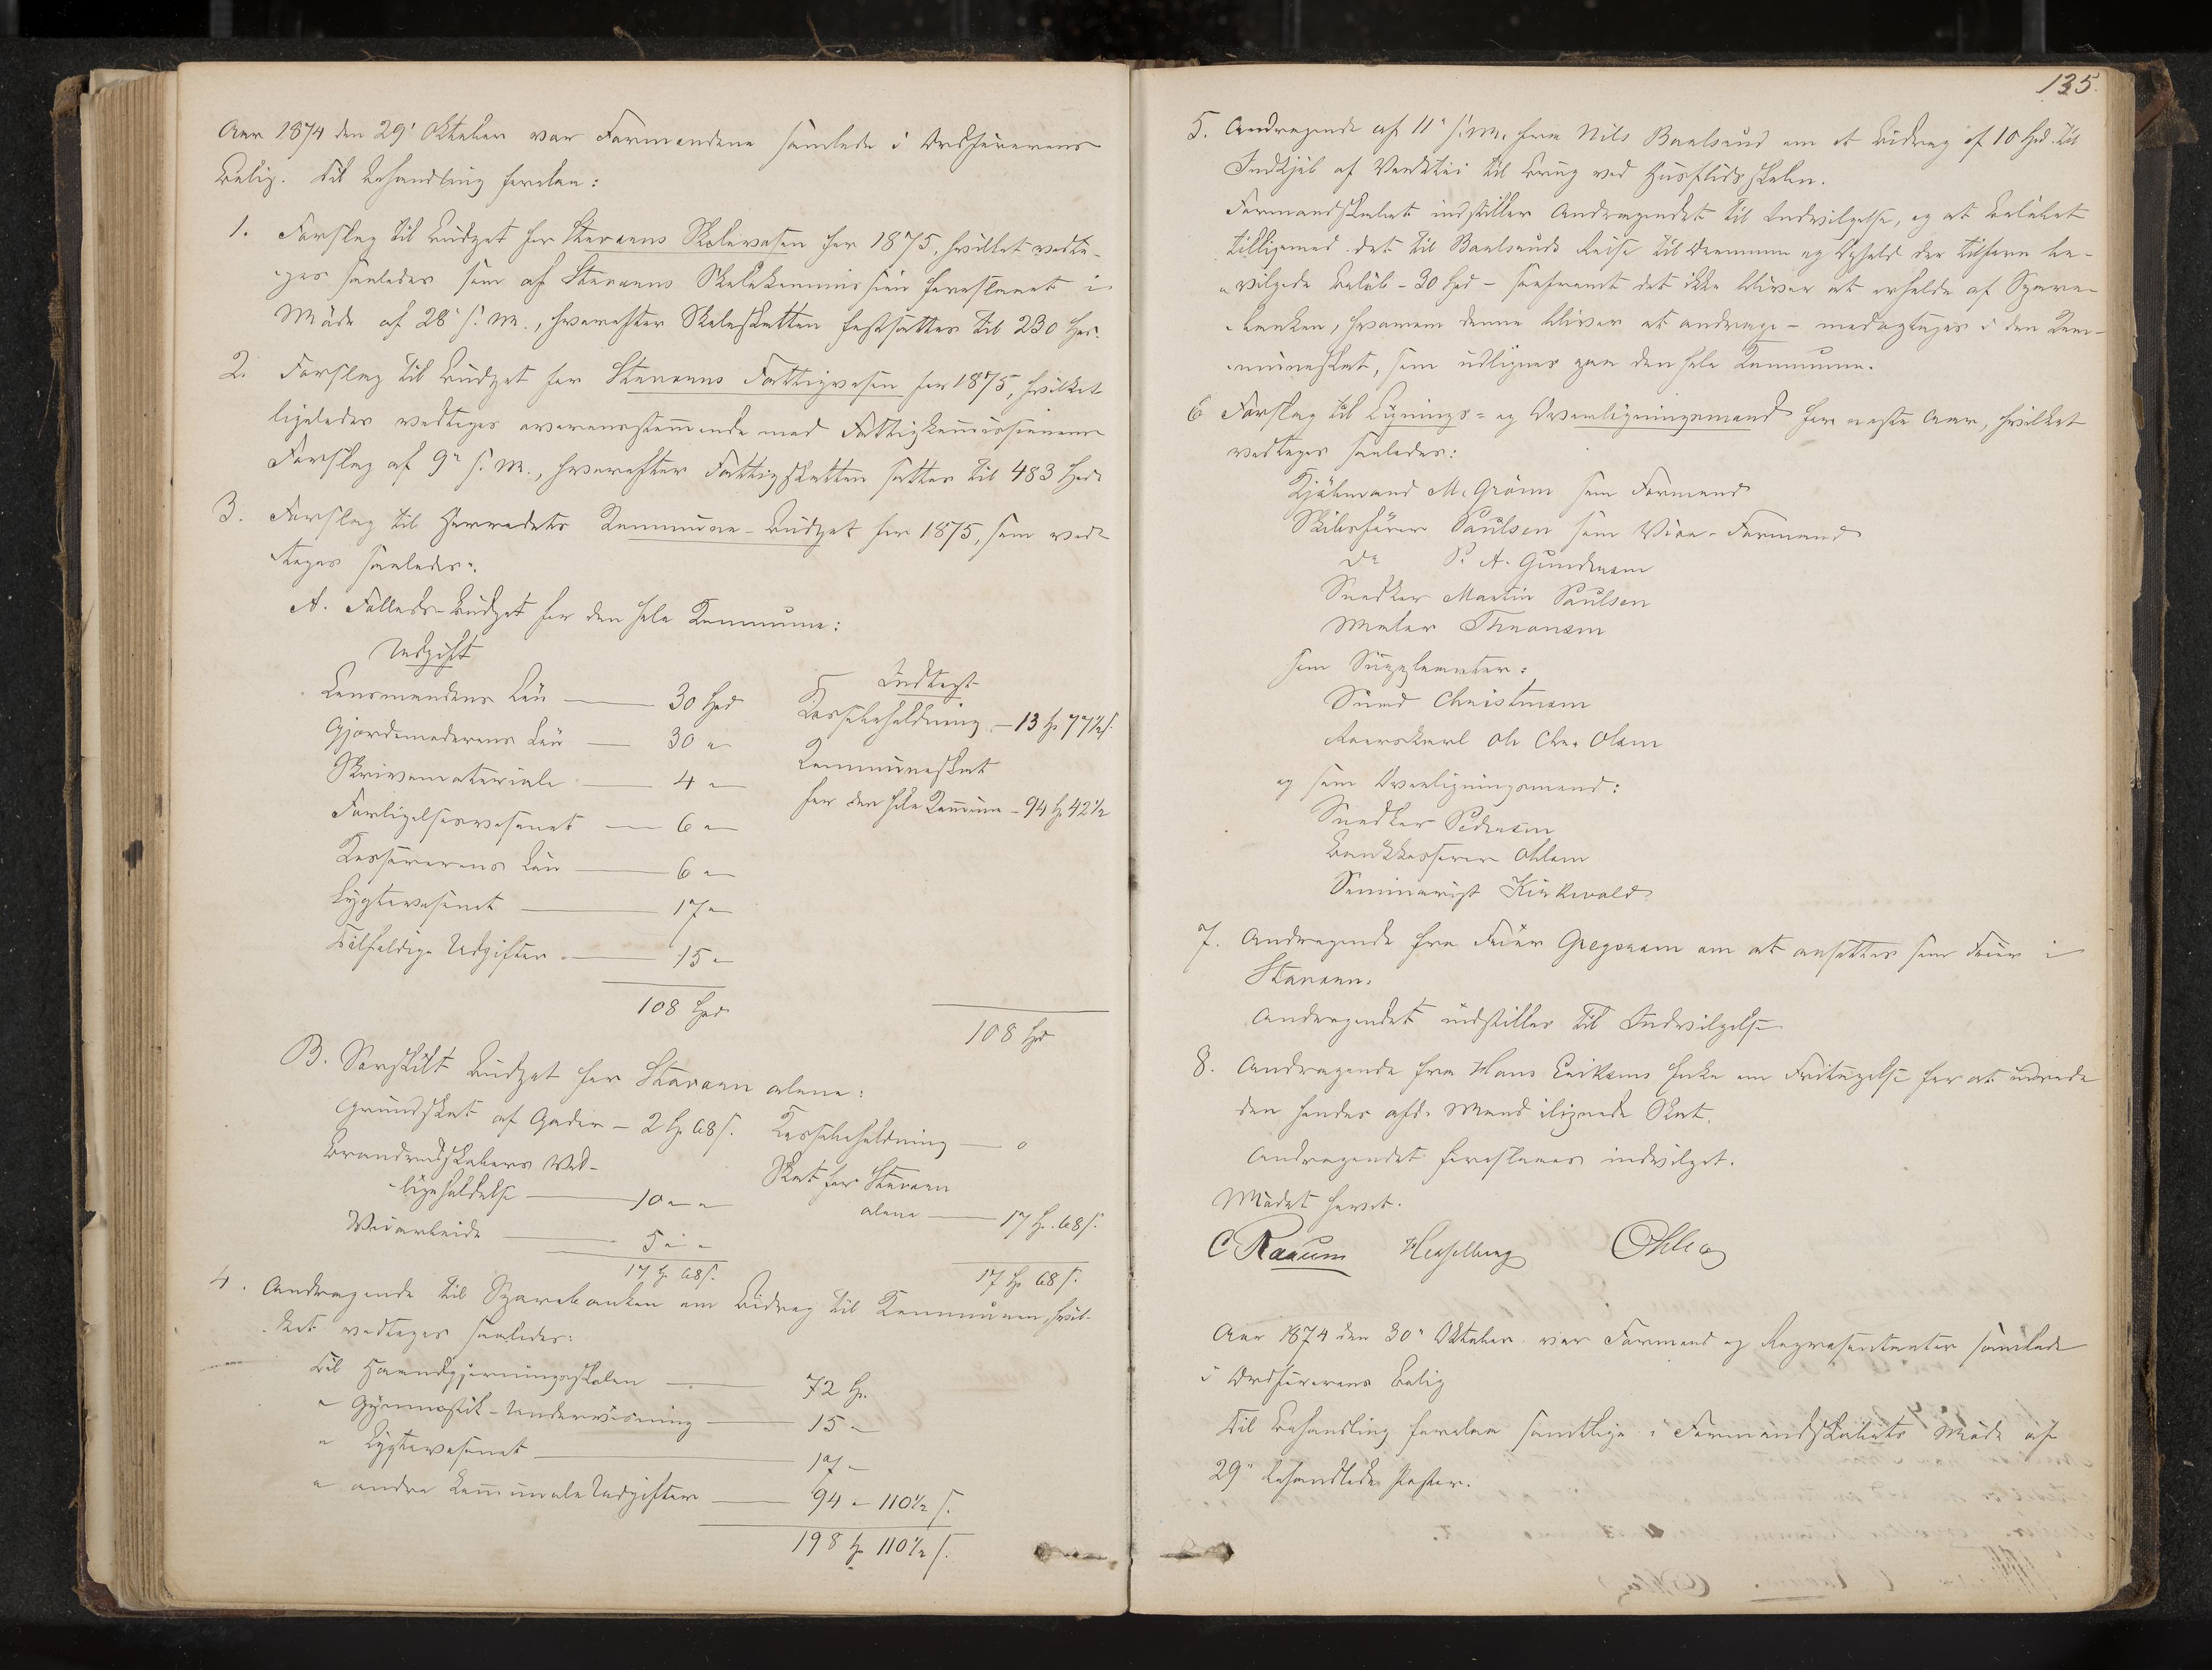 Aar 1874 den 29' Oktober var Formændene samlede i Ordførerens
Bolig. Til Behandling forelaa:
1. Forslag til Budget for Staværns Skolevæsen for 1875, hvilket vedto-
ges saaledes som af Staværns Skolekommission foreslaaet i
Møde af 28' f. M., hvorefter Skoleskatten fastsættes til 230 Spd.
2. Forslag til Budget for Staværns Fattigvæsen for 1875, hvilket
ligeledes vedtoges overensstemmende med Fattigkommissionens
Forslag af 9' f. M., hvorefter Fattigskatten sættes til 483 Spd
3. Forslag til Herredets Kommune-Budget for 1875, som ved-
toges saaledes:
A. Fælleds-Budget for den hele Kommune:
Udgift
Indtægt
Lensmandens Løn — 30 Spd
Kassebeholdning — 13 Sp 77½ s.
Gjordemoderens Løn — 30 "
Kommuneskat
Skrivemateriale — 4 "
for den hele Kommune — 94 Sp 42½
Forligelsesvæsenet — 6 "
Kassererens Løn — 6 "
Lygtevæsenet — 17 "
Tilfældige Udgifter — 15 "
108 Spd
108 Spd
B. Særskilt Budget for Staværn alene:
Grundskat af Gader — 2 Sp 68 s.
Kassebeholdning — 0
Brandredskabers Ved-
Skat for Staværn
ligeholdelse — 10 " "
alene — 17 Sp. 68 s.
Veiarbeide — 5 " "
17 Sp 68 s.
17 Sp 68 s.
4. Andragende til Sparebanken om Bidrag til Kommunen, hvil-
ket vedtoges saaledes:
Til Haandgjerningsskolen — 72 Sp.
" Gymnastik-Undervisning — 15 "
" Lygtevæsenet — 17 "
" andre kommunale Udgifter — 94 " 110½ s.
198 Sp 110½ s.
135.
5. Andragende af 11' f. M. fra Nils Baalsrud om et Bidrag af 10 Spd. til
Indkjøb af Værktøi til Brug ved Husflidsskolen.
Formandskabet indstiller Andragendet til Indvilgelse, og at Beløbet
tilligemed det til Baalsruds Reise til Drammen og Ophold der tilforn be-
vilgede Beløb – 30 Spd – saafremt det ikke bliver at erholde af Spare-
banken, hvorom denne bliver at andrage – medoptages i den Kom-
muneskat, som udlignes paa den hele Kommune.
6 Forslag til Lignings- og Overligningsmænd for næste Aar, hvilket
vedtoges saaledes:
Kjøbmand M. Grønn som Formand
Skibsfører Paulsen som Vice-Formand
Do P. A. Gundersen
Snedker Martin Paulsen
Maler Thoresen
som Supleanter:
Smed Christensen
Værskarl Ole Chr. Olsen
og som Overligningsmænd:
Snedker Pedersen
Bankkasserer Ohlsen
Seminarist Kirkevold
7. Andragende fra Feier Gregersen om at ansættes som Feier i
Staværn.
Andragendet indstilles til Indvilgelse
8. Andragende fra Hans Eriksens Enke om Fritagelse for at udrede
den hendes afd. Mand ilignede Skat.
Andragendet foreslaaes indvilget.
Mødet hævet.
C Raaum Hesselberg Ohlsen
Aar 1874 den 30' Oktober var Formænd og Repræsentanter samlede
i Ordførerens Bolig
Til Behandling forelaa samtlige i Formandskabets Møde af
29' behandlede Poster.